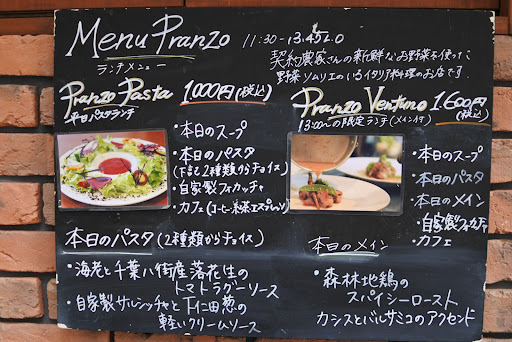 Menu Pranzo
ランチメニュー
11:30-13:45L.O
契約農家さんの新鮮なお野菜を使った
野菜ソムリエのいるイタリア料理のお店です.
Pranzo Pasta 1,000円(税込)
平日パスタランチ
・本日のスープ
・本日のパスタ
(下記2種類からチョイス)
・自家製フォカッチャ
・カフェ(コーヒー・紅茶・エスプレッソ)
Pranzo Ventuno 1,600円(税込)
13:00〜の限定ランチ(メイン付)
・本日のスープ
・本日のパスタ
・本日のメイン
・自家製フォカッチャ
・カフェ
本日のパスタ(2種類からチョイス)
・海老と千葉八街産落花生の
トマトラグーソース
・自家製サルシッチャと下仁田葱の
軽いクリームソース
本日のメイン
・森林地鶏の
スパイシーロースト
カシスとバルサミコのアクセント